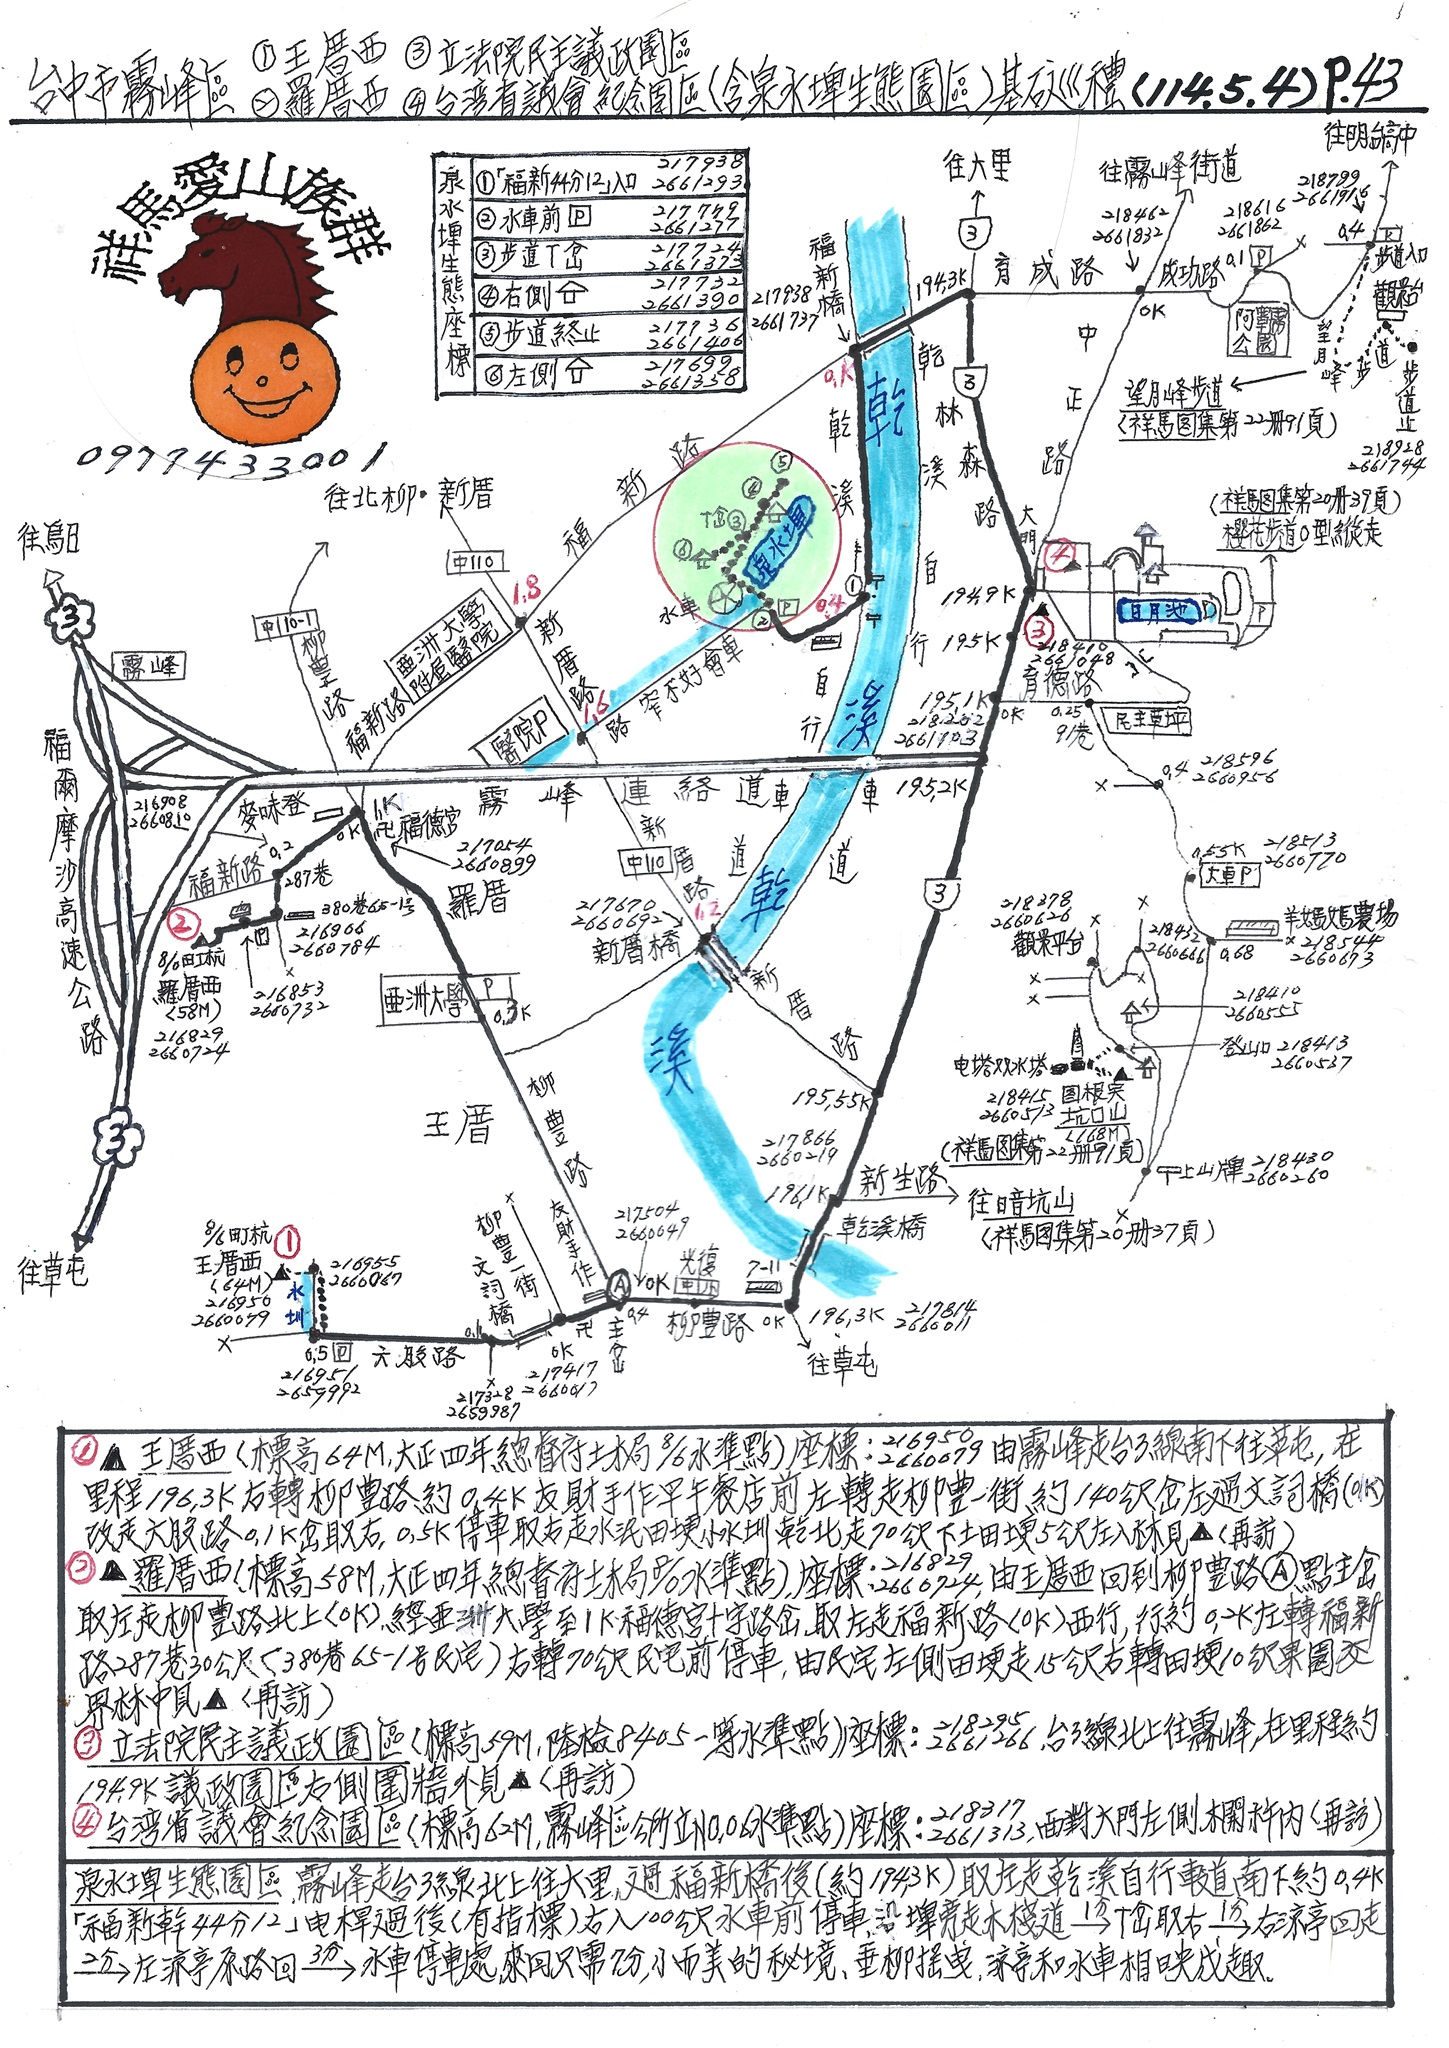 台中市霧峰區 ①王厝西 ③立法院民主議政園區
②羅厝西 ④台湾省議會紀念園區(含泉水埤生態園區)基石巡禮(114.5.4)P.43
祥馬愛山族群
0977433001
泉水埤生態座標
①「福新44分12」入口 217938 2661293
②水車前 P 217749 2661277
③步道T岔 217724 2661373
④右側 217732 2661390
⑤步道終止 217736 2661406
⑥左側 217699 2661358
往大里
往霧峰街道
往明台高中
218462
2661832
218616
2661862
218799
2661916
福新橋
217938
2661737
194.3K
育成路
成功路
0K
0.1
P
0.4
步道入口
觀景台
阿公
望月峰步道
步道止
218928
2661744
望月峰步道
(祥馬图集第22册91頁)
(祥馬图集第20册39頁)
櫻花步道O型縱走
中正路
林森路
大門
日月池
P
0.1K
乾溪自行車道
乾溪自行車道
乾溪
乾溪
往北柳·新厝
中110
1.8
福新路
新厝路
亞洲大學附屬醫院
醫院P
1.6
窄不好會車
泉水埤
水車
T岔
① ② ③ ④ ⑤ ⑥
P
0.4
往烏日
3
霧峰
中110-1
柳豐路
福新路
福爾摩沙高速公路
霧峰連絡道
194.9K
195K
195.1K
218202
2661103
195.2K
3
④
③
218410
2661048
育德路
0K
0.25
91巷
民主草坪
0.4
218596
2660956
0.55K
大車P
218513
2660770
羊媽媽農場
218544
2660673
0.68
218432
2660666
218378
2660626
觀景平台
218410
2660555
登山口 218413
2660537
电塔双水塔
218415
2660513
图根実
坑口山
(168M)
(祥馬图集第22册91頁)
上山牌 218430
2660260
216908
2660810
麥味登
0K
1K
福德宮
217054
2660899
0.2
福新路
287巷
380巷65-1号
216906
2660784
②
8/0町杭
羅厝西
(58M)
216829
2660724
216853
2660732
羅厝
亞洲大學
P
0.3K
中110
新厝路
1.2
217670
2660692
新厝橋
新厝路
195.55K
王厝
柳豐路
217866
2660219
196.1K
新生路
往暗坑山
(祥馬图集第20册37頁)
乾溪橋
往草屯
8/6町杭
①
王厝西
(64M)
216950
2660079
水圳
216955
2660067
0.5
216951
2659992
六股路
0.1
文詞橋
柳豐一街
友財手作
217328
2659987
0K
217417
2660017
主岔
A
0K
0.4
217504
2660049
光復
中110
7-11
柳豐路
0K
196.3K
217814
2660011
往草屯
①▲王厝西(標高64M,大正四年總督府土木局8/6水準點)座標:216950 2660079由霧峰走台3線南下往草屯,在
里程196.3K右轉柳豐路約0.4K友財手作早午餐店前左轉走柳豐一街約140公尺岔左過文詞橋(0K)
改走六股路0.1K岔取右,0.5K停車取右走水泥田埂小水圳乾北走70公尺下土田埂5公尺左入林見▲(再訪)
②▲羅厝西(標高58M,大正四年總督府土木局8/0水準點),座標:216829 2660724,由王厝西回到柳豐路Ⓐ點主岔
取左走柳豐路北上(0K),經亞洲大學至1K福德宮十字路岔,取左走福新路(0K)西行,行約0.2K左轉福新
路287巷30公尺(380巷65-1号民宅)右轉70公尺民宅前停車,由民宅左側田埂走15公尺右轉田埂10公尺果園交
界林中見▲(再訪)
③立法院民主議政園區(標高59M,陸檢8405一等水準點)座標:218295 2661266,台3線北上往霧峰,在里程約
194.9K議政園區右側圍牆外見▲(再訪)
④台湾省議會紀念園區(標高62M,霧峰區公所立N0.06水準點)座標:218317 2661313,面對大門左側欄杆內(再訪)
泉水埤生態園區,霧峰走台3線北上往大里,過福新橋後(約194.3K)取左走乾溪自行車道南下約0.4K
「福新幹44分12」电桿過後(有指標)右入100公尺水車前停車,沿埤旁走木棧道1分→T岔取右1分→右涼亭回走
2分→左涼亭原路回3分→水車停車處,來回只需7分,小而美的秘境、垂柳搖曳,涼亭和水車相映成趣.